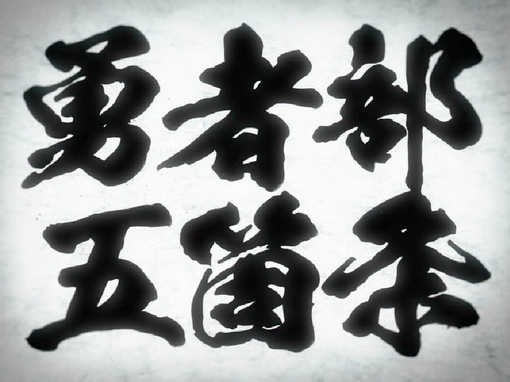 勇者部
五箇条